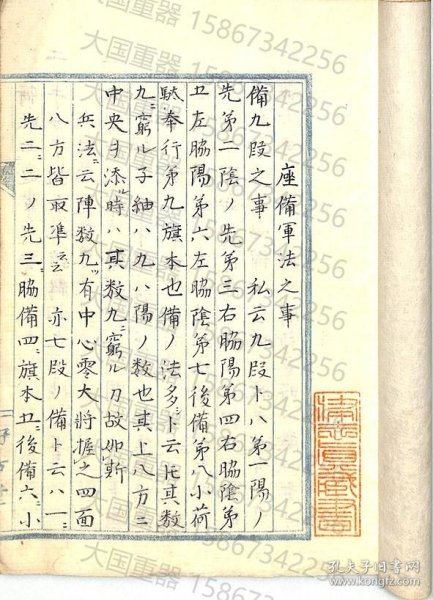 座備軍法之事
備九段之事　私云九段ト八第一陽ノ
先第二陰ノ先第三右脇陽第四右脇陰第
五左脇陽第六左脇陰第七後備第八小荷
駄奉行第九旗本也備ノ法多シト云ヒ其数
九ニ窮ル子細ハ九ハ陽ノ数也其上八方ニ
中央ヲ添ル時ハ其数九ニ窮ル刀故如斯
兵法ニ云陣数九ニ有中心零大将握之四面
八方皆取準ニ云　亦七段ノ備ト云ハ一ニ
先二ニ二ノ先三ニ脇備四ニ旗本五ニ後備六ニ小
大国重器 15867342256
孔夫子旧书网
www.kongfz.com